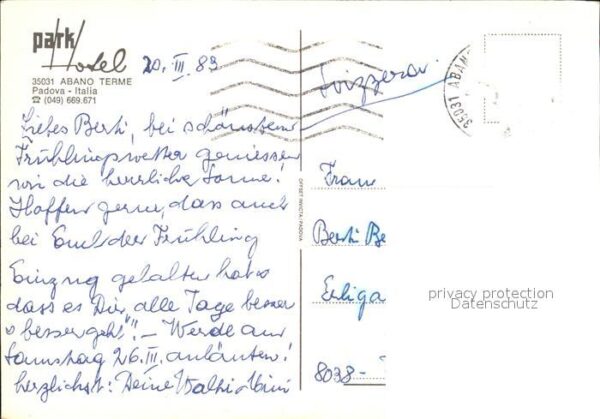 park Hotel
35031 ABANO TERME
Padova - Italia
☎ (049) 669.671
20. III 83
Svizzera
35031 ABANO
Liebes Berti, bei schönstem
Frühlingswetter geniessen
wir die herrliche Sonne!
Hoffen gerne, dass auch
bei Euch der Frühling
Einzug gehalten hat &
dass es Dir alle Tage besser
& besser geht"! – Werde am
Samstag 26. III. anläuten!
herzlichst: Deine Walti
OFFSET INVICTA - PADOVA
Frau
Berti Be
Erliga
8038 -
privacy protection
Datenschutz